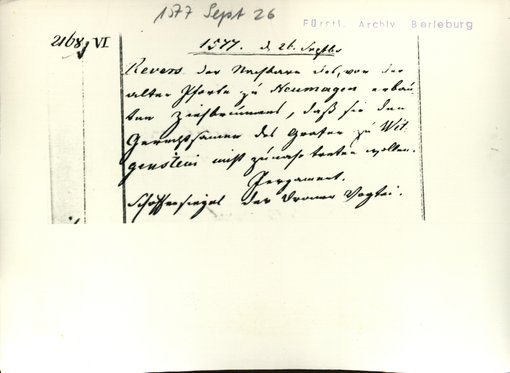 1577 Sept 26
Fürstl. Archiv Berleburg
2168, VI
1577. d. 26. Septbr
Revers der Nachbarn des, vor der
alten Pforte zu Neumagen erbau-
ten Ziehbrunnens, daß sie den
Gerechtsamen des Grafen zu Wit-
genstein nicht zu nahe treten wollen.
Pergament.
Schöffensiegel der Droner Vogtei.